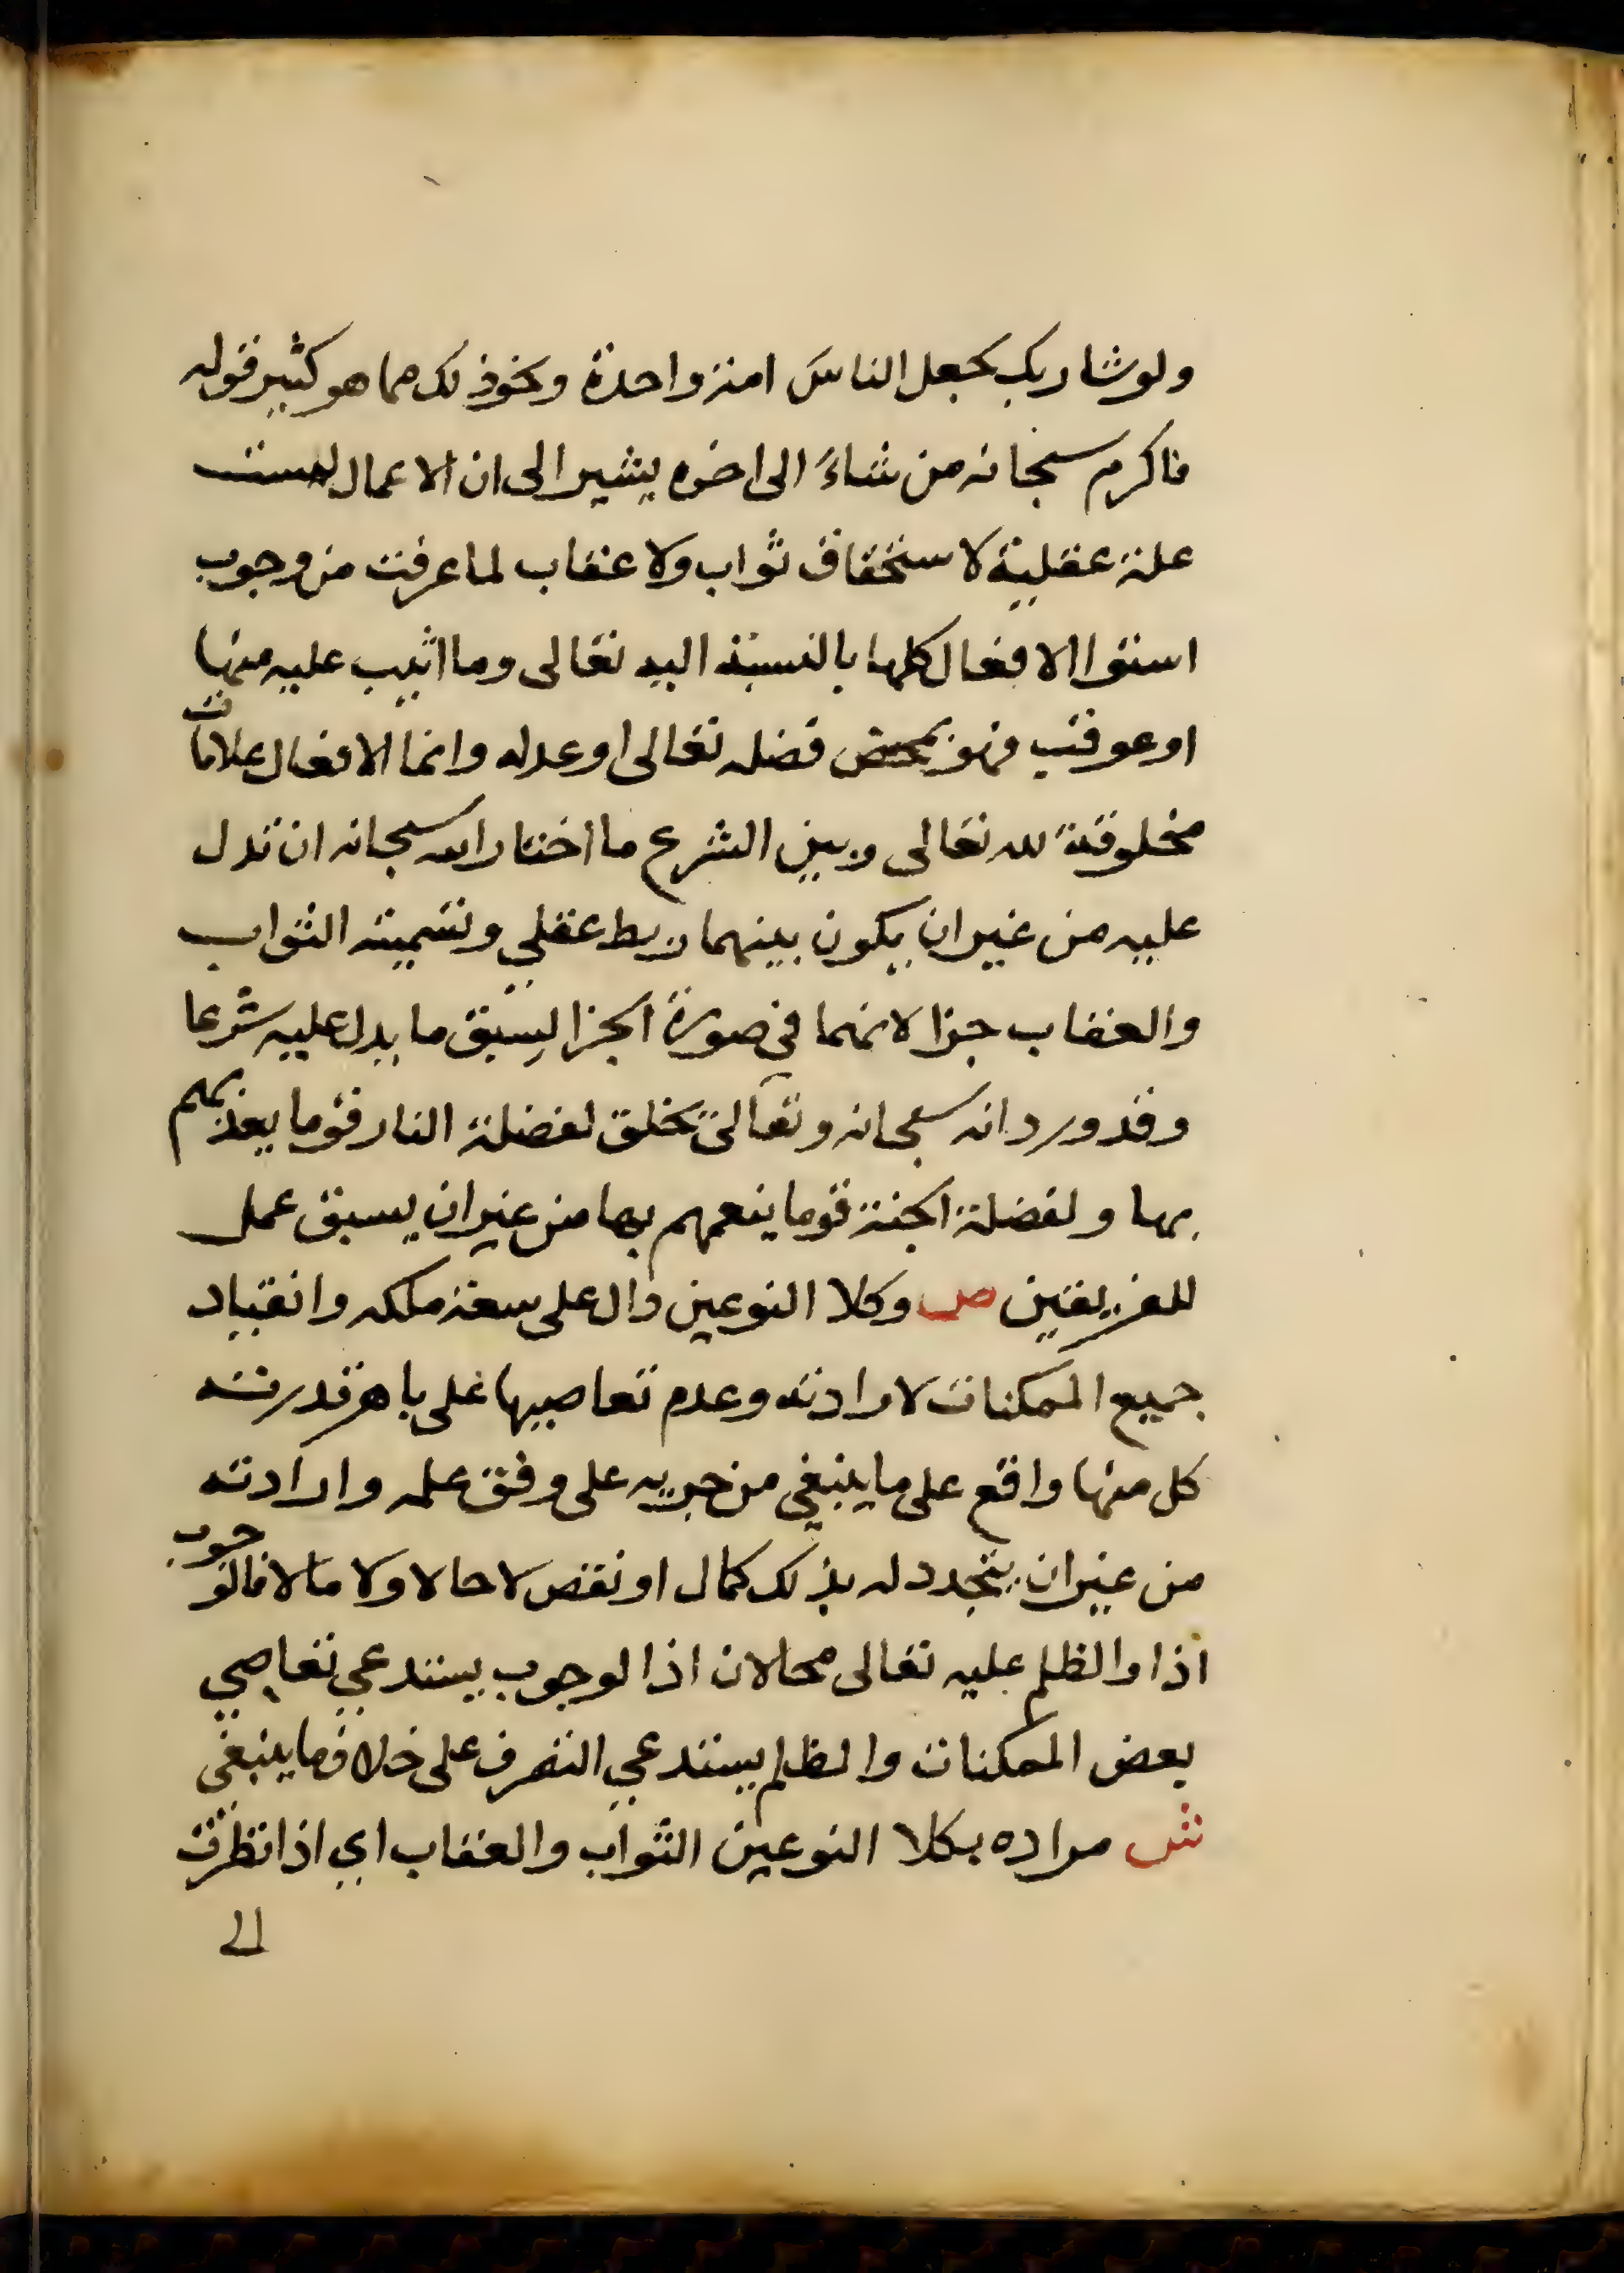 ولو شا ربك لجعل الناس امة واحدة ونحو ذلك مما هو كثير قوله
فاكرم سبحانه من شاء الى اخره يشير الى ان الاعمال ليست
علة عقلية لاستحقاق ثواب ولا عقاب لما عرفت من وجوب
استوا الافعال كلها بالنسبة اليه تعالى وما اثيب عليه منها
او عوقب فهو بمحض فضله تعالى او عدله وانما الافعال علامات
مخلوقة لله تعالى وبين الشرع ما اختار الله سبحانه ان تدل
عليه من غير ان يكون بينهما ربط عقلي وتسمية الثواب
والعقاب جزا لانهما في صورة الجزا لسبق ما يدل عليه شرعا
وقد ورد انه سبحانه وتعالى يخلق لفضلة النار قوما يعذبهم
بها ولفضلة الجنة قوما ينعمهم بها من غير ان يسبق عمل
للفريقين ص وكلا النوعين دال على سعة ملكه وانقياد
جميع الممكنات لارادته وعدم تعاصيها على باهر قدرته
كل منها واقع على ما ينبغي من جريه على وفق علمه وارادته
من غير ان يتجدد له بذلك كمال او نقص لا حالا ولا مآلا فالوجوب
اذا والظلم عليه تعالى محالان اذ الوجوب يستدعي تعاصي
بعض الممكنات والظلم يستدعي التصرف على خلاف ما ينبغي
ش مراده بكلا النوعين الثواب والعقاب اي اذا نظرت
الى